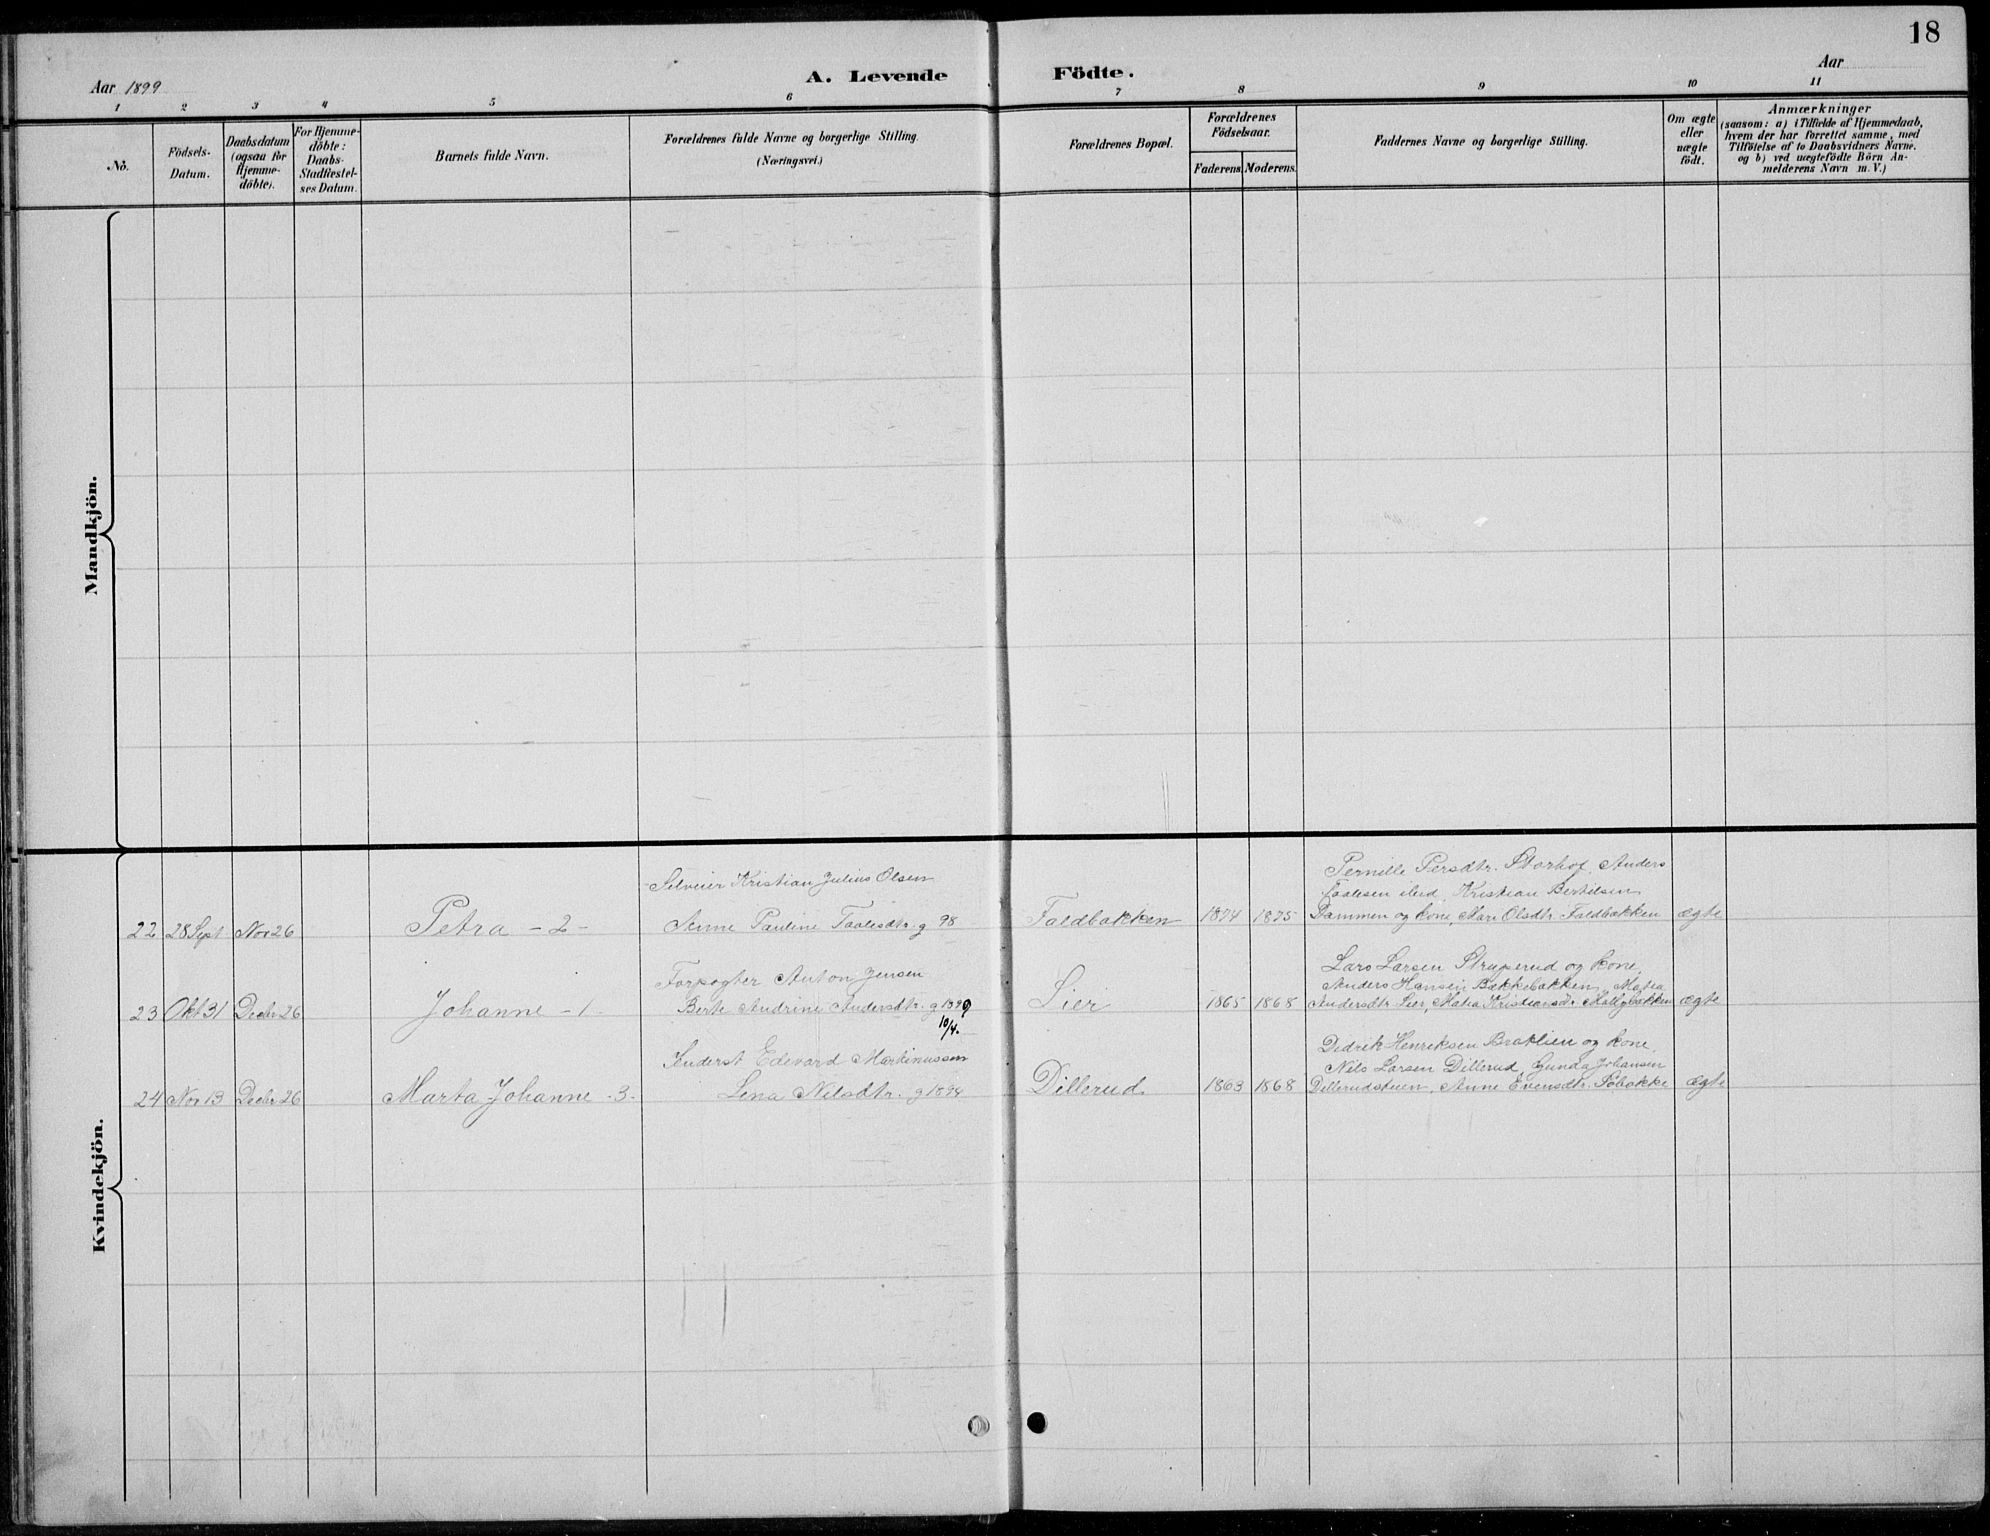 18
Aar 1899
A. Levende Födte.
Aar
1 2 3 4 5 6 7 8 9 10 11
No.
Födsels-Datum.
Daabsdatum (ogsaa for Hjemme-döbte).
For Hjemme-döbte: Daabs-Stadfæstel-ses Datum.
Barnets fulde Navn.
Forældrenes fulde Navne og borgerlige Stilling. (Næringsvei.)
Forældrenes Bopæl.
Forældrenes Födselsaar.
Faderens. Moderens.
Faddernes Navne og borgerlige Stilling.
Om ægte eller uægte födt.
Anmærkninger (saasom: a) i Tilfælde af Hjemmedaab, hvem der har forrettet samme, med Tilföielse af to Daabsvidners Navne. og b) ved uægtefödte Börn An-melderens Navn m. V.)
Mandkjön.
Selveier Kristian Julius Olsen
Pernille Persdtr. Storhof, Anders
Taalesen ibid, Kristian Bertilsen
22 28 Sept Nov 26 Petra - 2 - Anne Pauline Taalesdtr. g 98 Faldbakken 1874 1875 Dammen og kone, Mari Olsdtr. Faldbakken ægte
Forpagter Anton Jensen
Lars Larsen Struperud og kone,
Anders Hansen Bakkebakken, Matea
23 Okt 31 Decbr 26 Johanne - 1 - Berte Andrine Andersdtr. g 1899 Lier 1865 1868 Andersdtr Lier, Matea Kristiansdr. ægte
10/4.
Inderst Edevard Martinussen
Didrik Henriksen Bratlien og kone,
Nils Larsen Dillerud, Gunda Johansen
24 Nov 13 Decbr 26 Marta Johanne - 3 - Lena Nilsdtr. g 1894 Dillerud 1863 1868 Dillerudstuen, Anne Evensdtr. ægte
Kvindekjön.